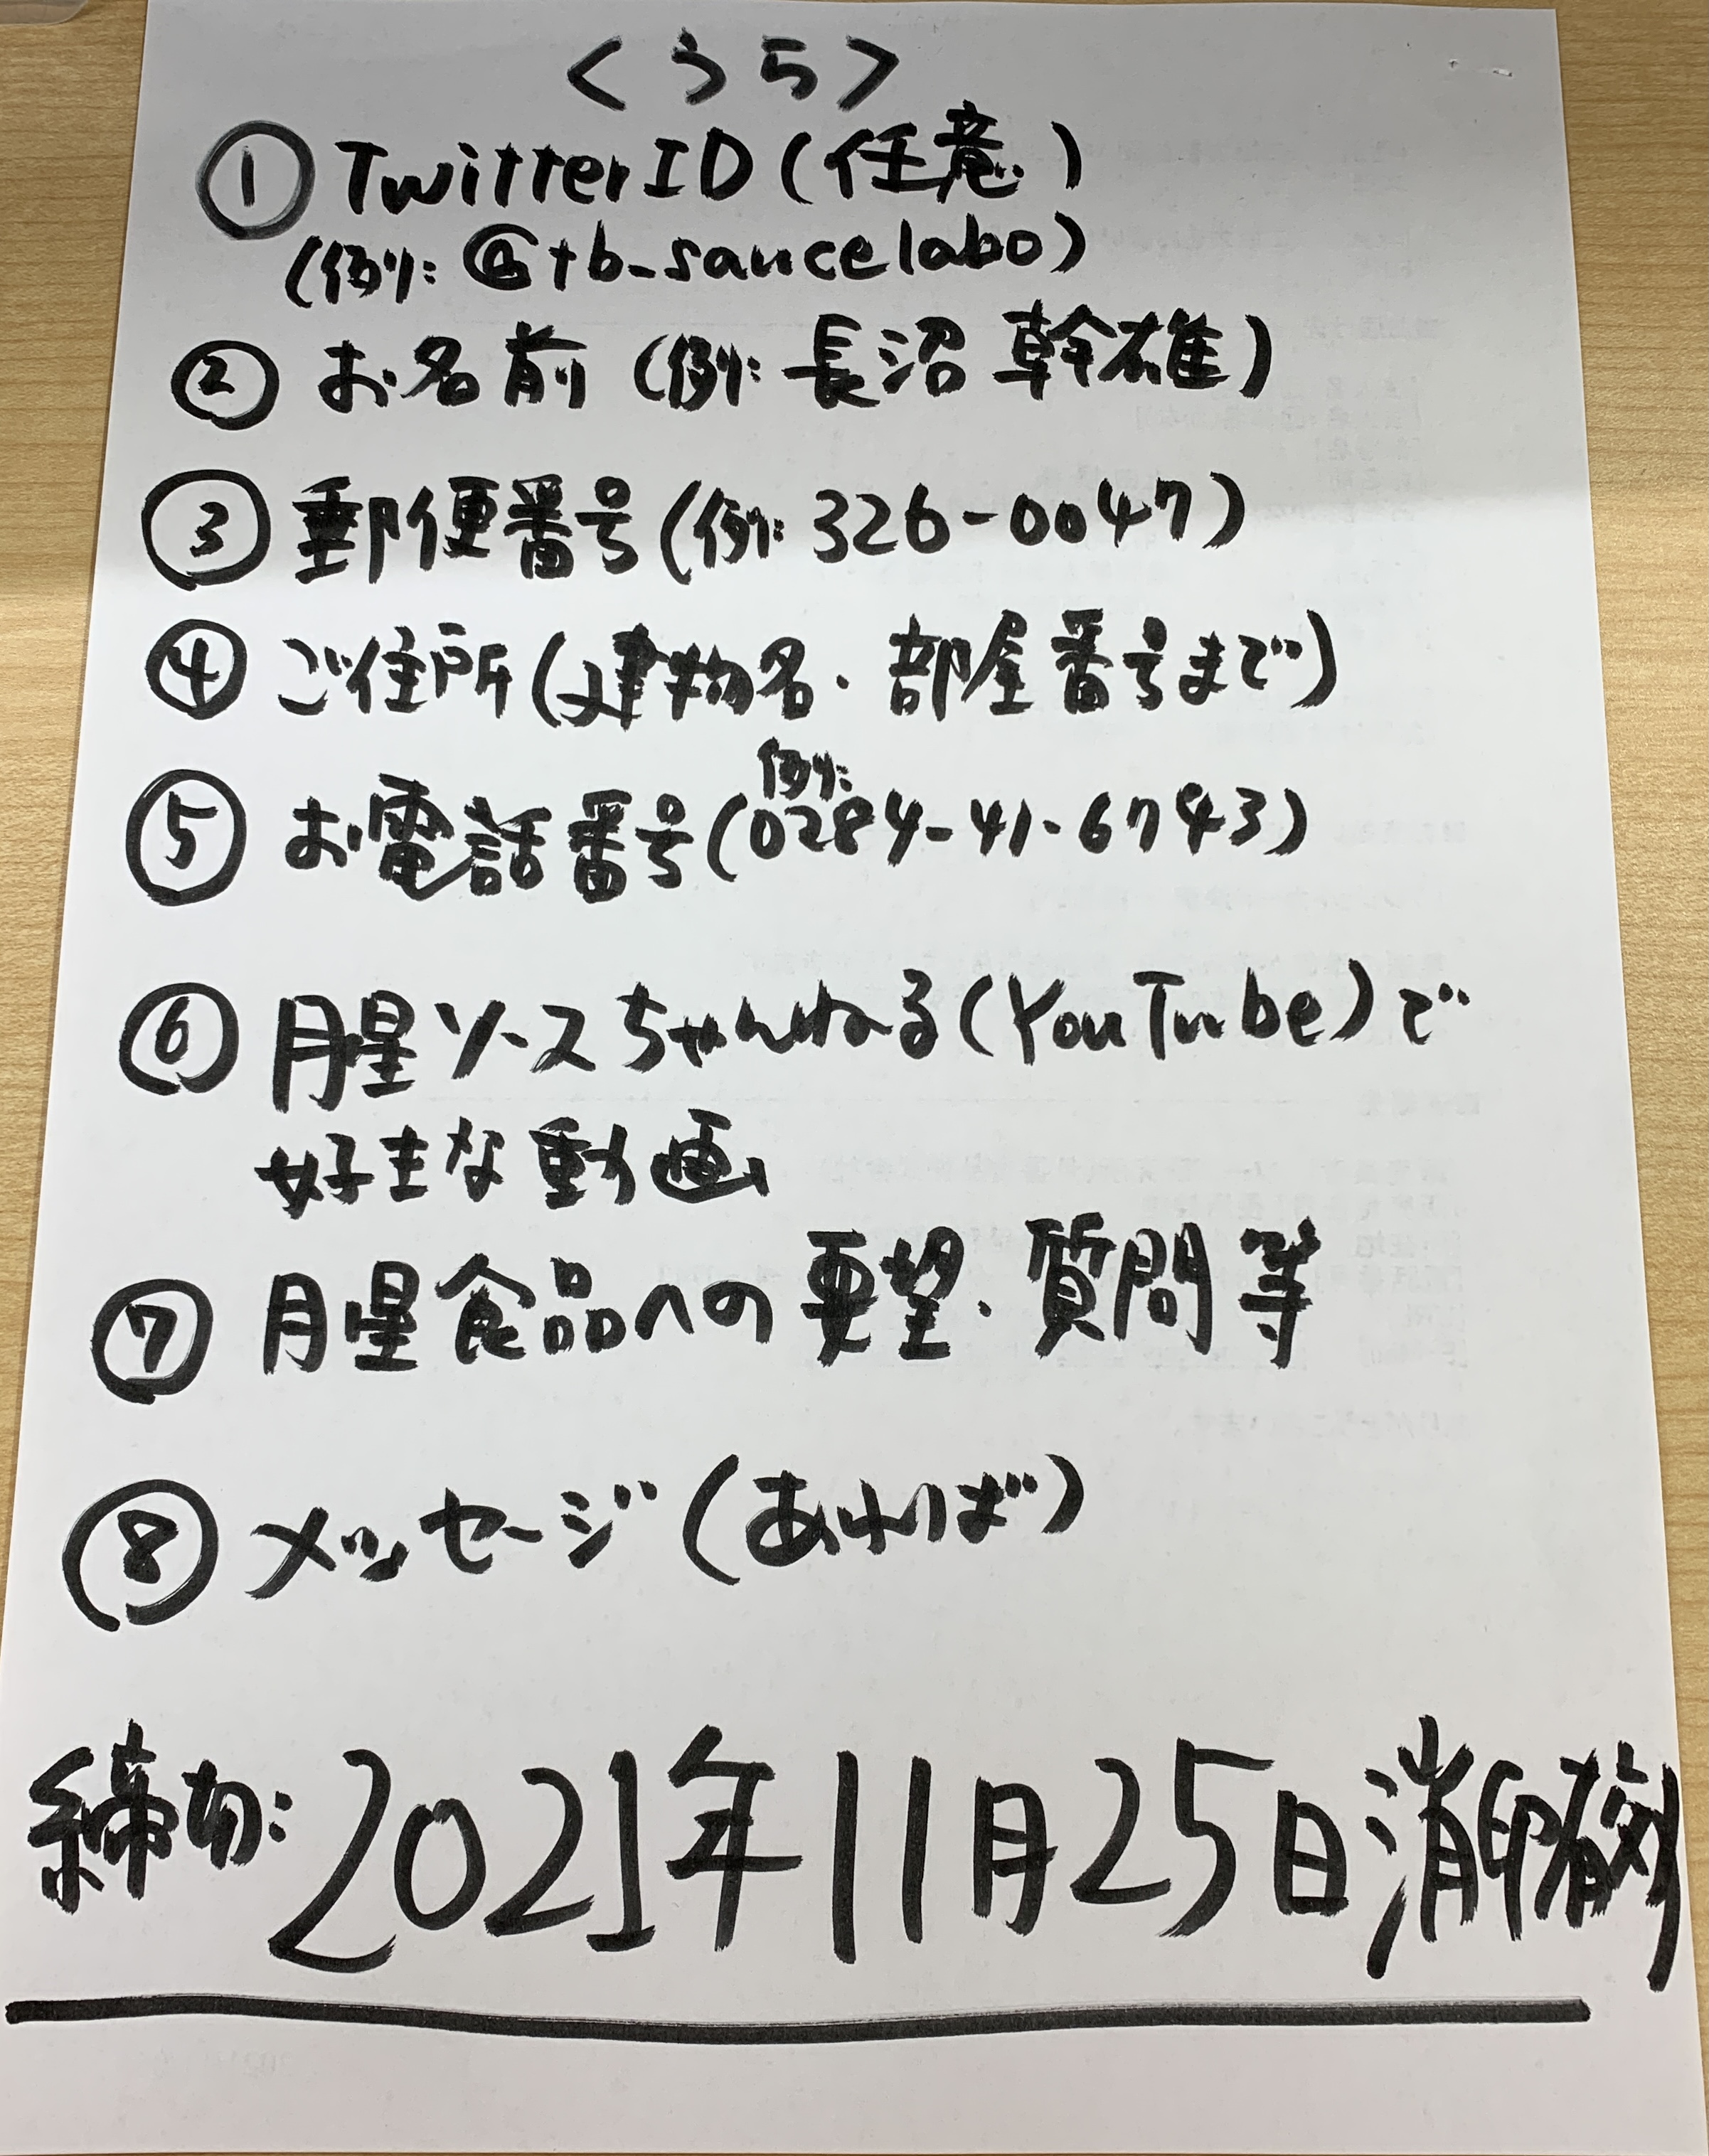 <うら>
① TwitterID(任意)
(例: @tb_saucelabo)
② お名前 (例: 長沼 幹雄)
③ 郵便番号(例: 326-0047)
④ ご住所(建物名・部屋番号まで)
⑤ お電話番号(例: 0284-41-6743)
⑥ 月星ソースちゃんねる(YouTube)で
好きな動画
⑦ 月星食品への要望・質問等
⑧ メッセージ(あれば)
締切: 2021年11月25日消印有効